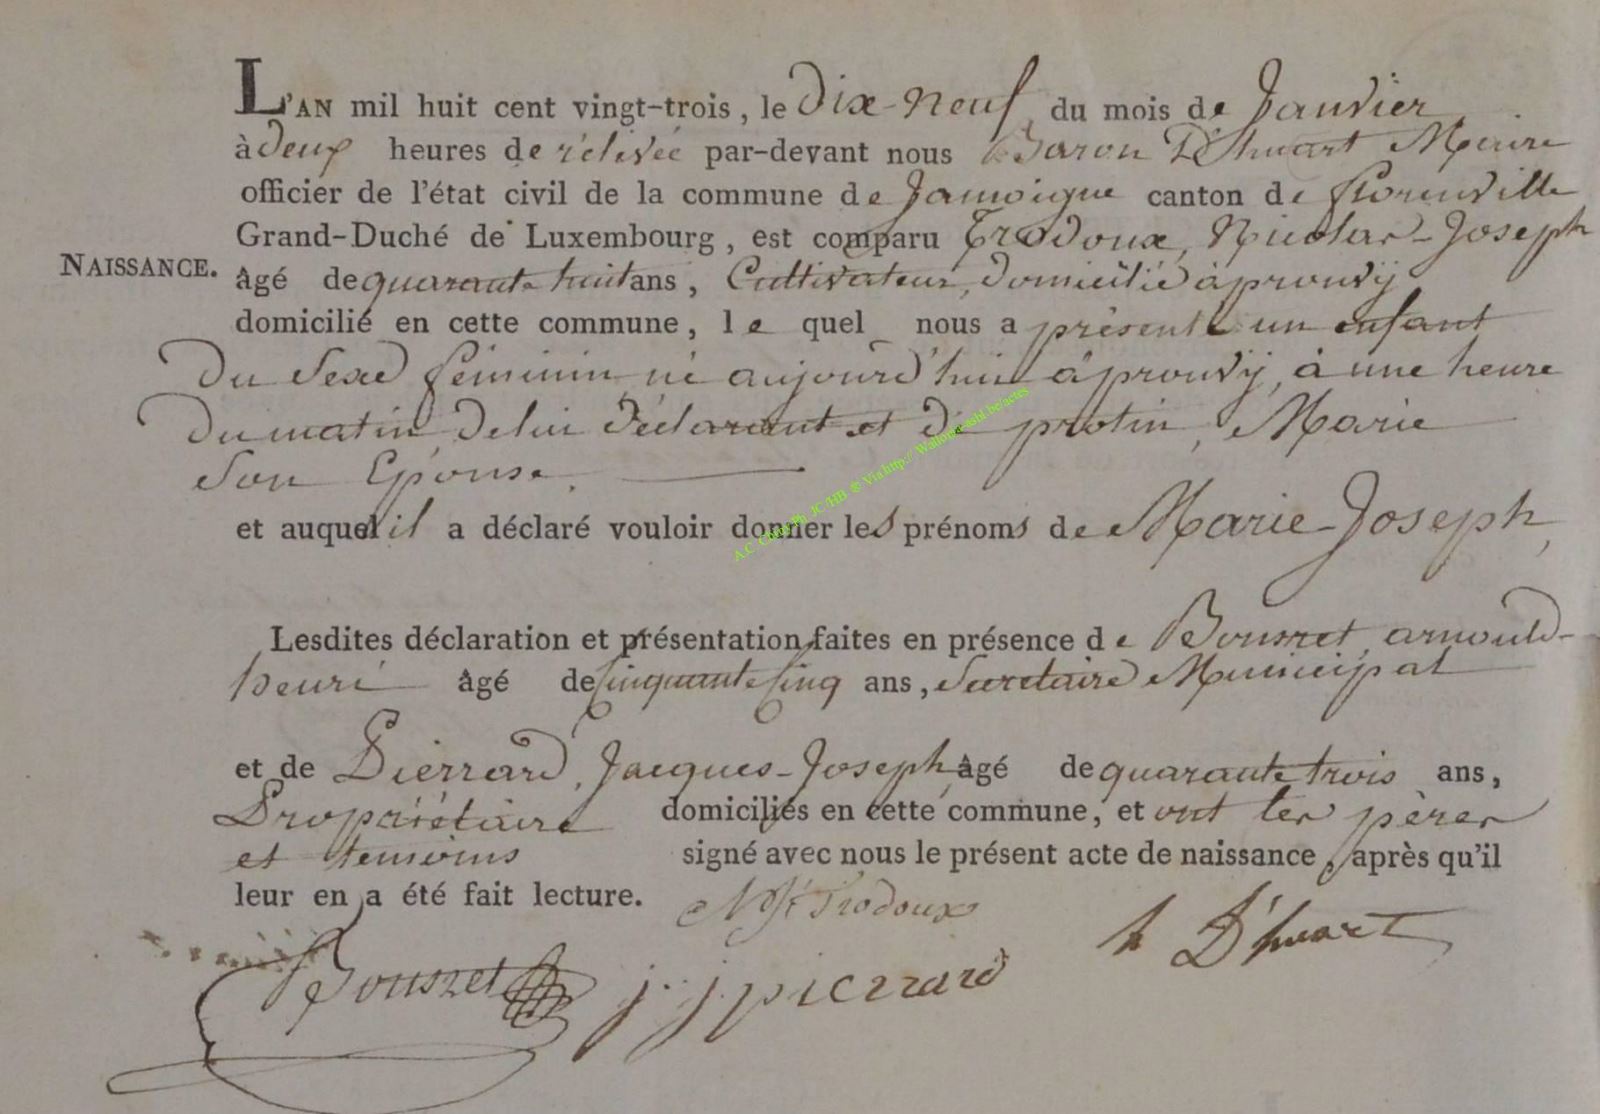 L'AN mil huit cent vingt-trois, le dix-neuf du mois de Janvier
à deux heures de rélivée par-devant nous Baron D'huart Maire
officier de l'état civil de la commune de Jamoigne canton de florenville
Grand-Duché de Luxembourg, est comparu Trodoux, Nicolas-Joseph
NAISSANCE. âgé de quarante huit ans, Cultivateur, domicilié à prouvÿ
domicilié en cette commune, le quel nous a présenté un enfant
du Sexe féminin, né aujourd'hui à prouvÿ, à une heure
du matin, de lui déclarant et de protin, Marie
Son Epouse.
et auquel il a déclaré vouloir donner les prénoms de Marie-Joseph,
Lesdites déclaration et présentation faites en présence de Bousret, arnould-
henri âgé de Cinquante Cinq ans, Secrétaire Municipal
et de Pierrard, Jacques-Joseph, âgé de quarante trois ans,
Propriétaire domiciliés en cette commune, et ont les pères
et temoins signé avec nous le présent acte de naissance, après qu'il
leur en a été fait lecture.
Trodoux
Bousret j. j. pierrard D'huart
A.C. Chiny Ph JC/HB @ Via http:// Wallonia asbl.be/actes